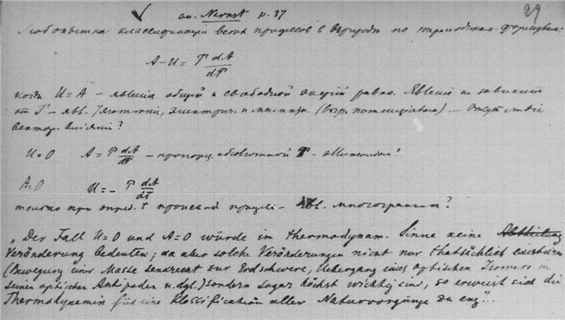 см. Nernst p. 37
29
Любопытна классификация всех процессов в природе по термодинам. формулам:
A − U = T dA/dT
когда U = A – явления общей и свободной энергий равно. Явления не зависит
от T – явл. тяготения, электрич. и магнитн. (потенциалов) –
вектор. влияний?
U = 0 A = T dA/dT – пропорц. абсолютной T –
A = 0 U = − T dA/dT
только при опред. t процесса –
„Der Fall U = 0 und A = 0 würde in thermodynam. Sinne keine Abtheilung
Veränderung bedeuten; da aber solche Veränderungen nicht nur thatsächlich existiren
(Bewegung einer Masse senkrecht zur Erdschwere, Uebergang eines optischen Isomers in
seinen optischen Antipoden u. dgl.) sondern sogar höchst wichtig sind, so erweist sich die
Thermodynamik für eine Klassification aller Naturvorgänge zu eng".